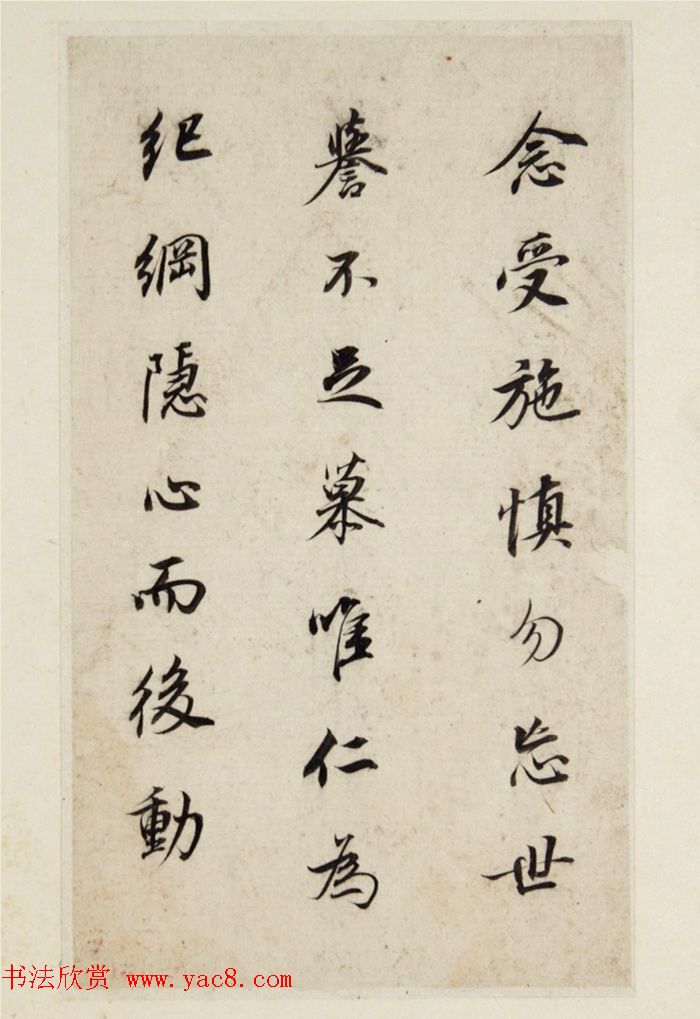 念受施慎勿忘世
譽不足慕唯仁為
紀綱隱心而後動
书法欣赏 www.yac8.com